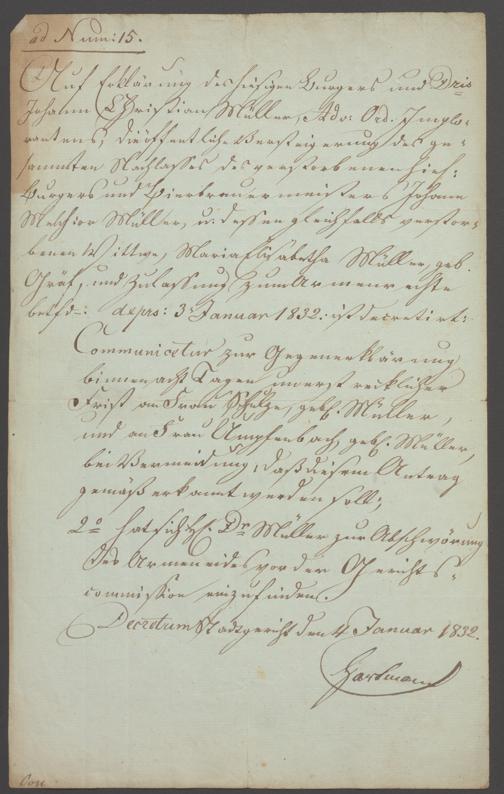 ad Num: 15.
Auf Erklärung des hiesigen Burgers und Dris
Johann Christian Müller, Adv: Ord. Implo-
rantens, die öffentliche Versteigerung des ge-
sammten Nachlasses des verstorbenen hies:
Burgers und Bierbrauermeisters Johann
Melchior Müller, u: dessen gleichfalls verstor-
benen Wittwe, Maria Elisabetha Müller, geb.
Gräf, und Zulassung zum Armenrechte
betfd: de prs: 3 Januar 1832. ist decretirt:
Communicetur zur Gegenerklärung
binnen acht Tagen unerstrecklicher
Frist an Frau Schulze, geb. Müller,
und an Frau Umpfenbach, geb. Müller,
bei Vermeidung, daß diesem Antrag
gemäß erkannt werden soll;
2o hat sich H. Dr Müller zur Abschwörung
des Armeneides vor der Gerichts-
commission einzufinden.
Decretum Stadtgericht den 4 Januar 1832.
Hartmann